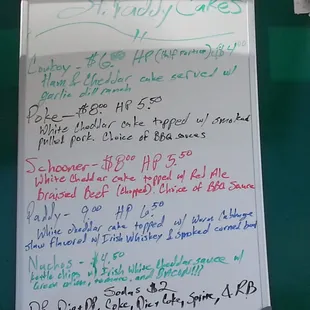 St. Paddy Cakes
Cowboy - $6.00 HP (Half Portion) $4.00
Ham & Cheddar cake served w/
Garlic dill ranch
Poke - $8.00 HP 5.50
White Cheddar cake topped w/ smoked
pulled pork. Choice of BBQ sauces
Schooner - $8.00 HP 5.50
White Cheddar cake topped w/ Red Ale
Braised Beef (chopped). Choice of BBQ Sauce
Paddy - 9.00 HP 6.50
White cheddar cake topped w/ Warm Cabbage
slaw flavored w/ Irish Whiskey & smoked corned beef
Nachos - $4.50
kettle chips w/ Irish White cheddar sauce w/
Green onions, and BACON!!!
Sodas $2
DP, Diet DP, Coke, Diet Coke, Sprite, A RB